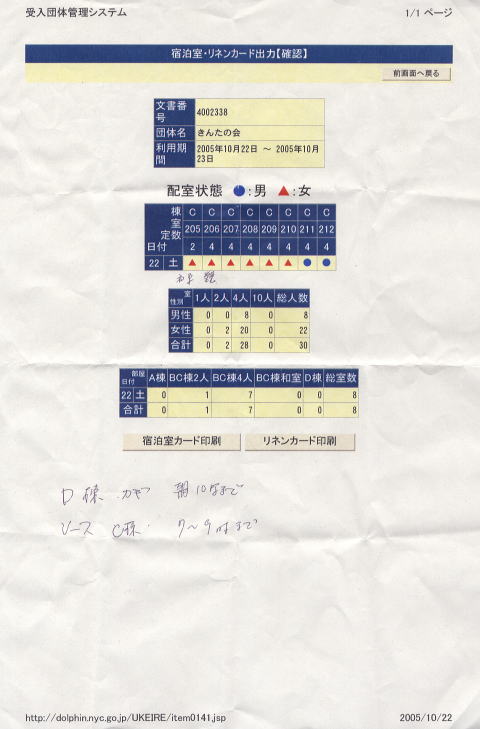 受入団体管理システム 1/1 ページ
宿泊室・リネンカード出力【確認】
前画面へ戻る
文書番号 4002338
団体名 きんたの会
利用期間 2005年10月22日 ～ 2005年10月23日
配室状態 ●:男 ▲:女
棟 C C C C C C C C
室 205 206 207 208 209 210 211 212
定数 2 4 4 4 4 4 4 4
日付
22 土 ▲ ▲ ▲ ▲ ▲ ▲ ● ●
室 性別 1人 2人 4人 10人 総人数
男性 0 0 8 0 8
女性 0 2 20 0 22
合計 0 2 28 0 30
部屋 日付 A棟 BC棟2人 BC棟4人 BC棟和室 D棟 総室数
22 土 0 1 7 0 0 8
合計 0 1 7 0 0 8
宿泊室カード印刷 リネンカード印刷
D棟 カギ 10時まで
C棟 7～9時まで
http://dolphin.nyc.go.jp/UKEIRE/item0141.jsp 2005/10/22